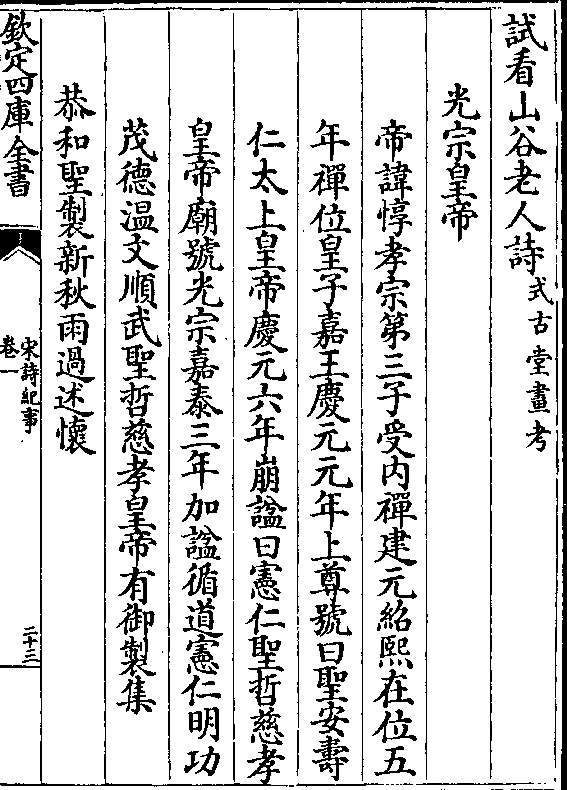 試看山谷老人詩式古堂畫考
光宗皇帝
帝諱惇孝宗第三子受内禪建元紹熙在位五
年禪位皇子嘉王慶元元年上尊號曰聖安壽
仁太上皇帝慶元六年崩諡曰憲仁聖哲慈孝
皇帝廟號光宗嘉泰三年加諡循道憲仁明功
茂德温文順武聖哲慈孝皇帝有御製集
恭和聖製新秋雨過述懷
欽定四庫全書
宋詩紀事
卷一
二十三